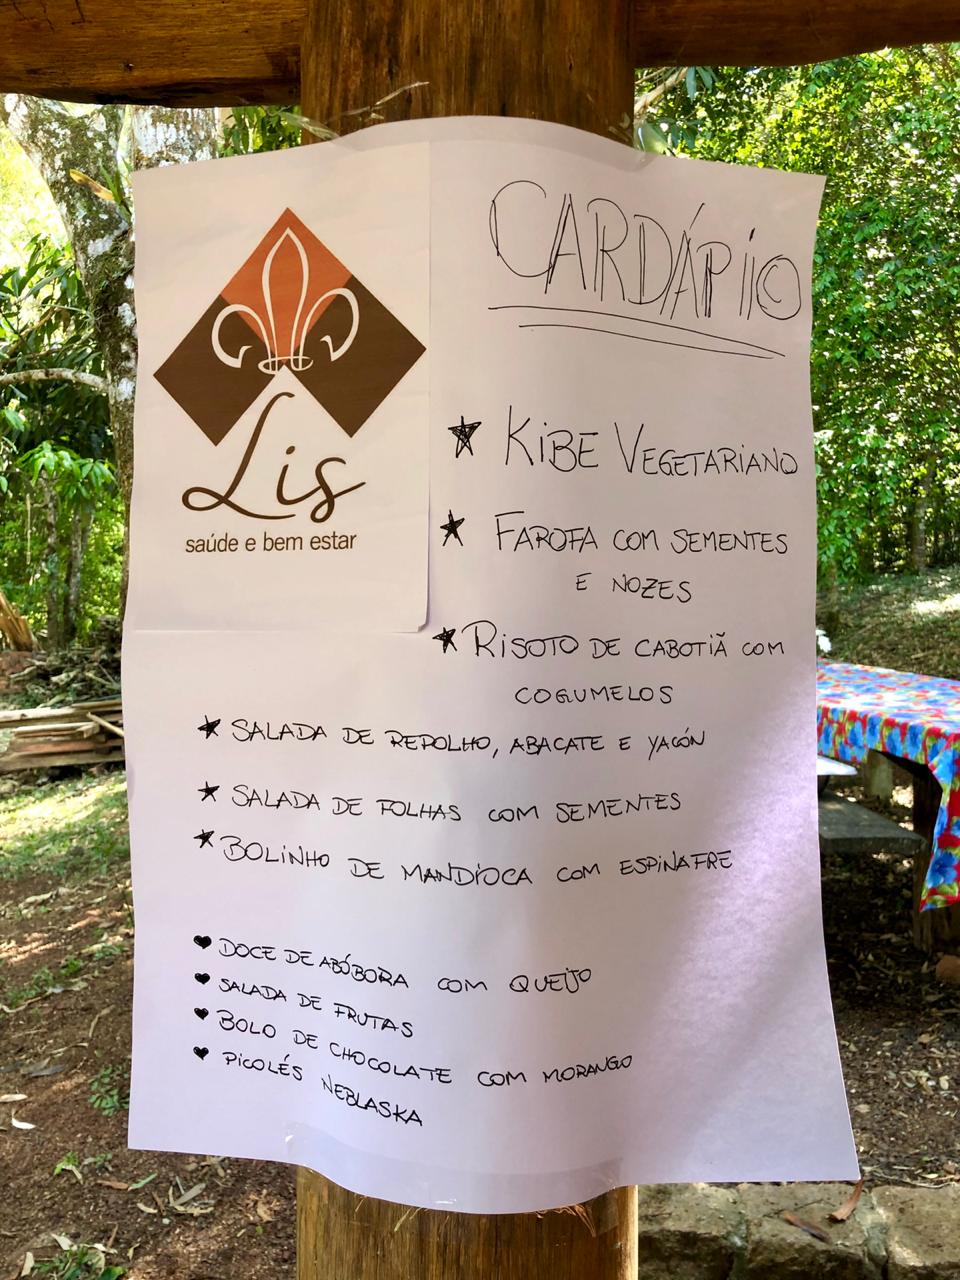 Lis
saúde e bem estar
CARDÁPIO
KIBE VEGETARIANO
FAROFA COM SEMENTES
E NOZES
RISOTO DE CABOTIÃ COM
COGUMELOS
SALADA DE REPOLHO, ABACATE E YACÓN
SALADA DE FOLHAS COM SEMENTES
BOLINHO DE MANDIOCA COM ESPINAFRE
DOCE DE ABÓBORA COM QUEIJO
SALADA DE FRUTAS
BOLO DE CHOCOLATE COM MORANGO
PICOLÉS NEBLASKA